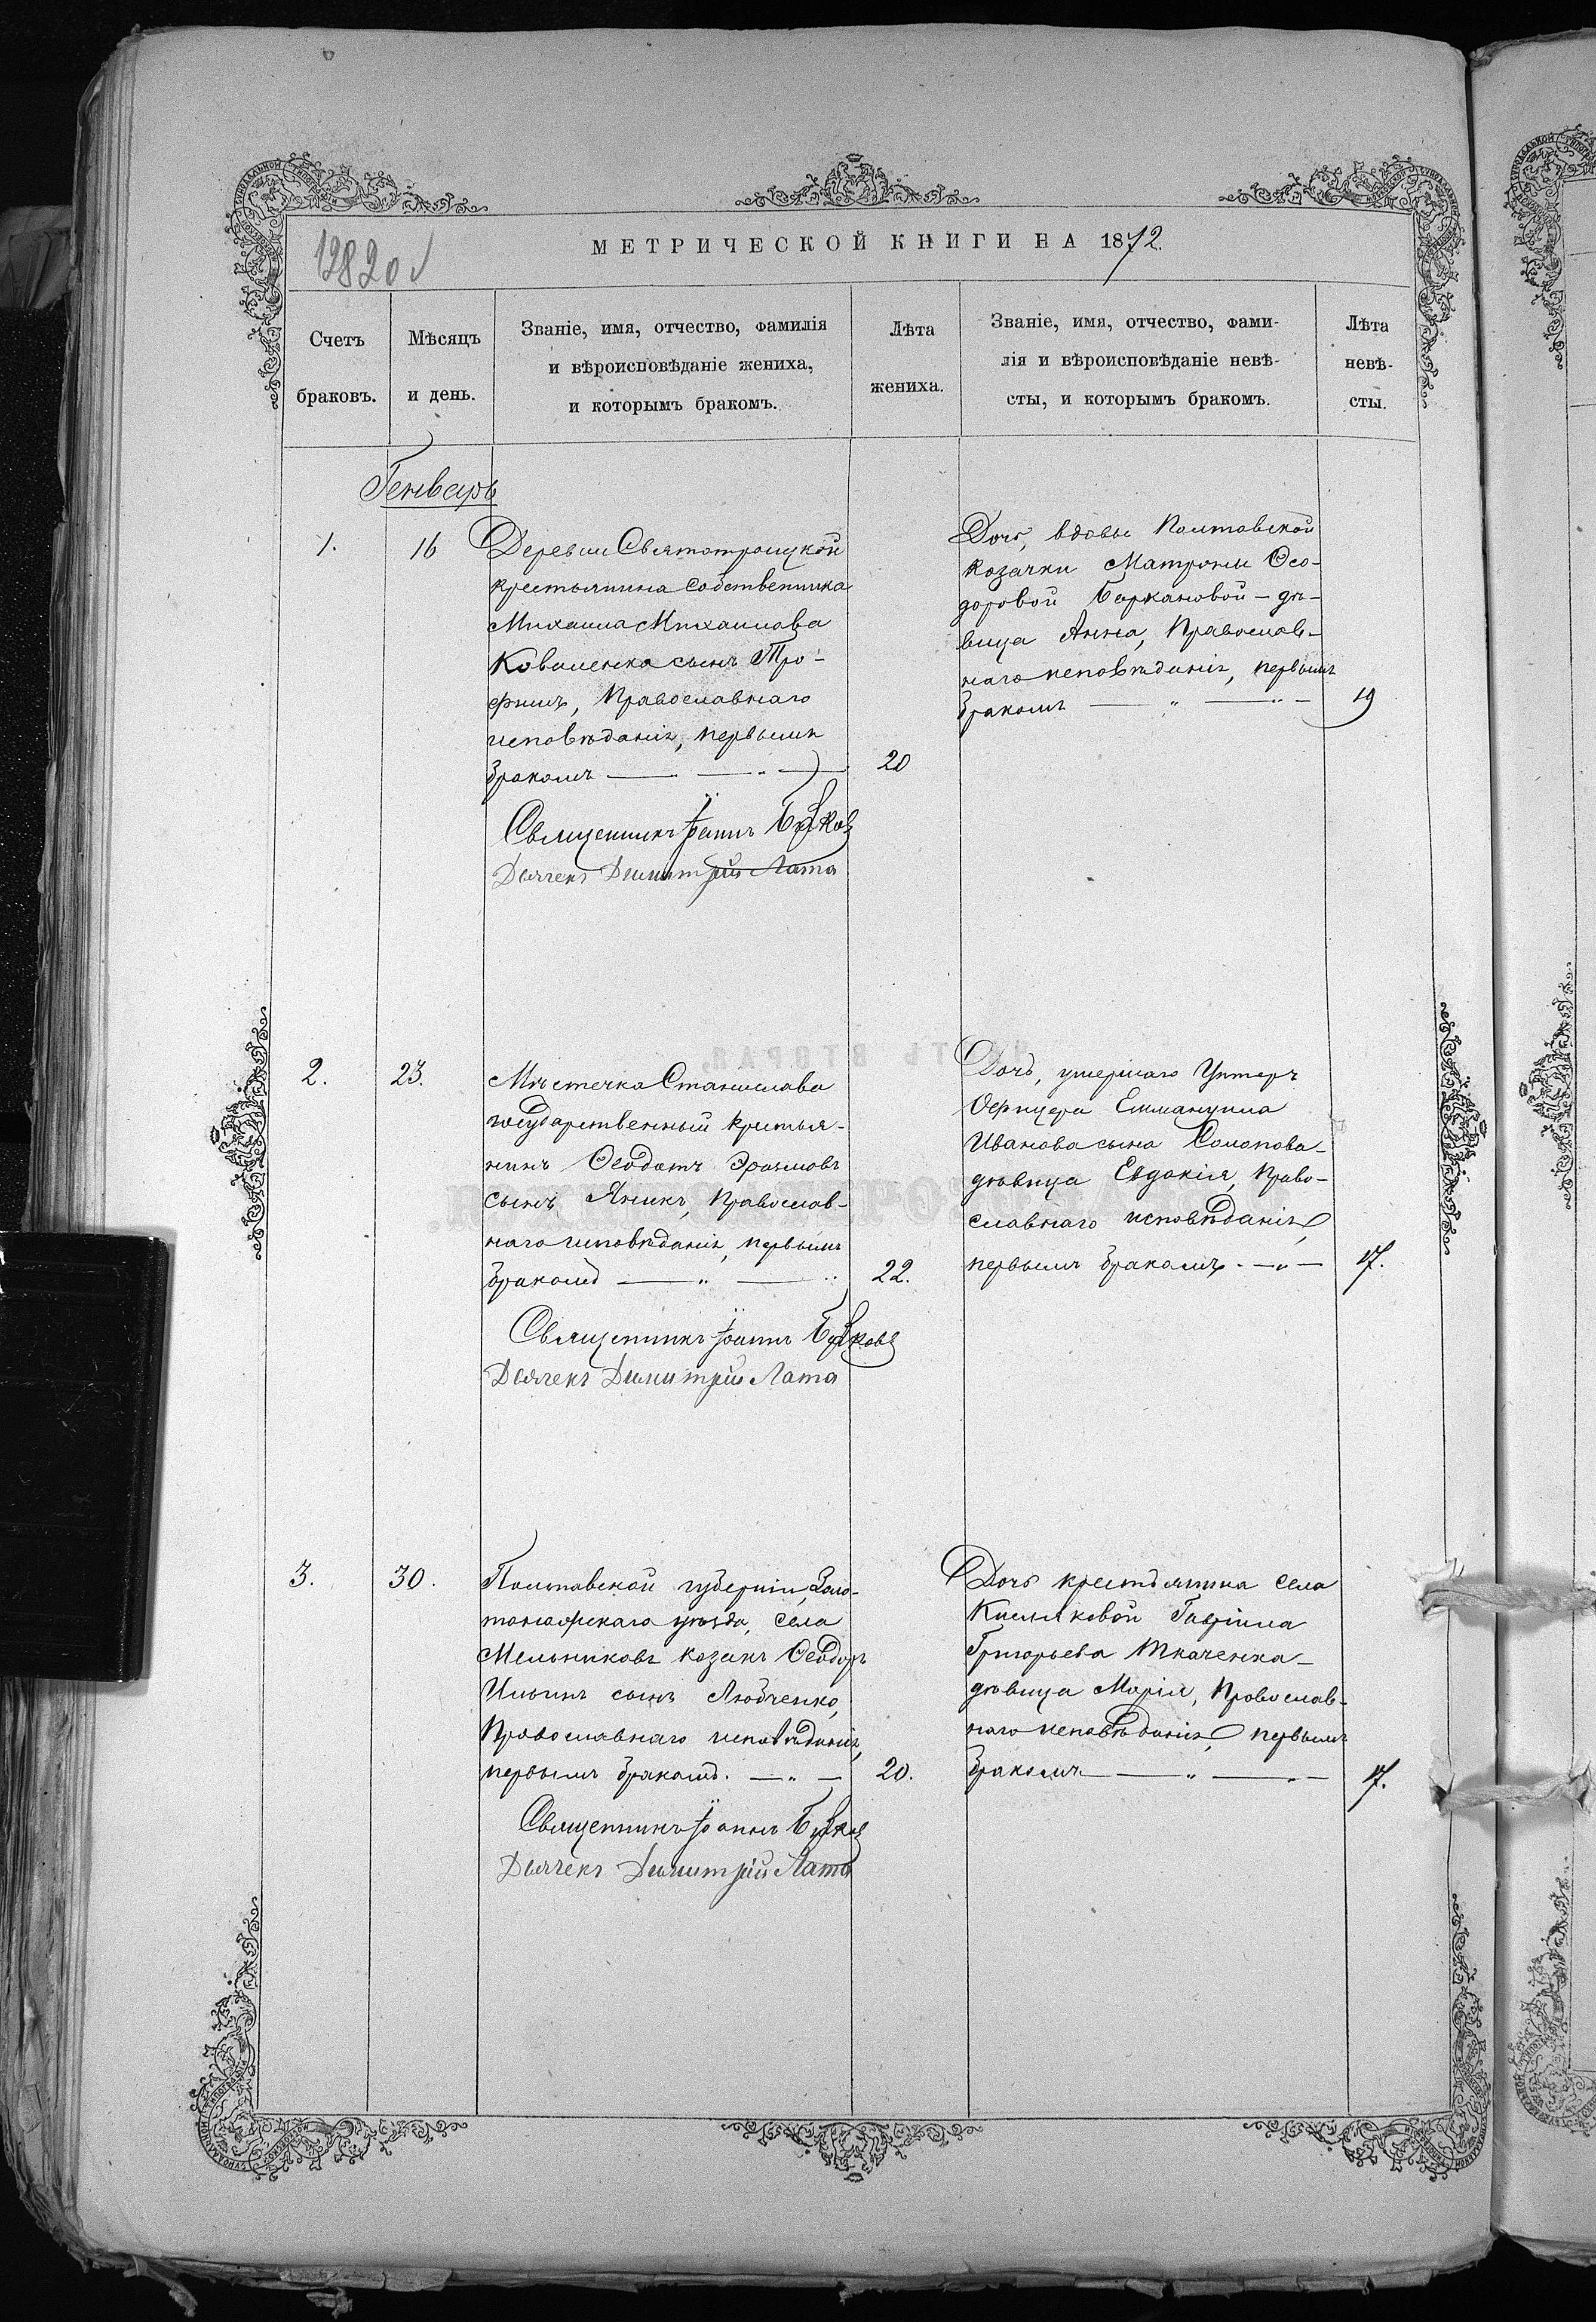 МЕТРИЧЕСКОЙ КНИГИ НА 1872.
1282об
Счетъ браковъ.
Мѣсяцъ и день.
Званіе, имя, отчество, фамилія
и вѣроисповѣданіе жениха,
и которымъ бракомъ.
Лѣта
жениха.
Званіе, имя, отчество, фами-
лія и вѣроисповѣданіе невѣ-
сты, и которымъ бракомъ.
Лѣта
невѣ-
сты.
Генварь
1.
16
Деревни Святотроицкой
крестьянина собственника
Михаила Михаилова
Коваленка сынъ Тро-
фимъ, Православнаго
исповѣданія, первымъ
бракомъ
20
Священникъ Іоаннъ
Дьячекъ Димитрій Лата
Дочь, вдовы Полтавской
козачки Матроны Ѳео-
доровой Баркановой - дѣ-
вица Анна, Православ-
наго исповѣданія, первымъ
бракомъ
19
2.
23.
Мѣстечка Станислава
государственный крестья-
нинъ Ѳеодотъ Эразмовъ
сынъ Яникъ, Православ-
наго исповѣданія, первымъ
бракомъ
22.
Священникъ Іоаннъ
Дьячекъ Димитрій Лата
Дочь, умершаго Унтеръ
Офицера Еммануила
Иванова сына Солопова -
дѣвица Евдокія, Право-
славнаго исповѣданія,
первымъ бракомъ.
17.
3.
30.
Полтавской губерніи, Золо-
тоношскаго уѣзда, села
Мельниковъ козакъ Ѳеодоръ
Ильинъ сынъ Любченко,
Православнаго исповѣданія,
первымъ бракомъ.
20.
Священникъ Іоаннъ
Дьячекъ Димитрій Лата
Дочь крестьянина села
Киселковой Гавріила
Григорьева Ткаченка -
дѣвица Марія, Православ-
наго исповѣданія, первымъ
бракомъ
17.